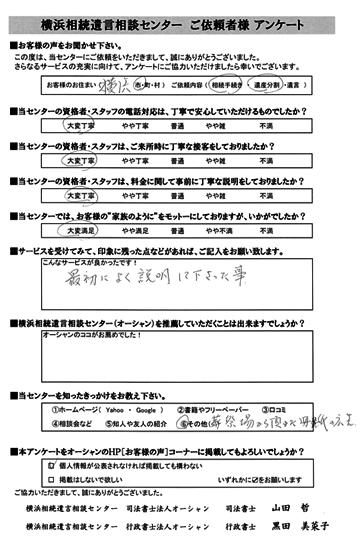 横浜相続遺言相談センター ご依頼者様 アンケート
■お客様の声をお聞かせ下さい。
この度は、当センターにご依頼をいただきまして、誠にありがとうございました。
さらなるサービスの充実に向けて、アンケートにご協力いただけましたら幸いでございます。
お客様のお住まい 横浜 (市・町・村) ご依頼内容 (相続手続き・遺産分割・遺言)
■当センターの資格者・スタッフの電話対応は、丁寧で安心していただけるものでしたか?
大変丁寧 やや丁寧 普通 やや雑 不満
■当センターの資格者・スタッフは、ご来所時に丁寧な接客をしておりましたか?
大変丁寧 やや丁寧 普通 やや雑 不満
■当センターの資格者・スタッフは、料金に関して事前に丁寧な説明をしておりましたか?
大変丁寧 やや丁寧 普通 やや雑 不満
■当センターでは、お客様の"家族のように"をモットーにしておりますが、いかがでしたか?
大変満足 やや満足 普通 やや不満 不満
■サービスを受けてみて、印象に残った点などがあれば、ご記入をお願い致します。
こんなサービスが良かったです!
最初によく説明して下さった事
■横浜相続遺言相談センター(オーシャン)を推薦していただくことは出来ますでしょうか?
オーシャンのココがお薦めでした!
■当センターを知ったきっかけをお教え下さい。
①ホームページ( Yahoo ・ Google ) ②書籍やフリーペーパー ③口コミ
④相談会など ⑤知人や友人の紹介 ⑥その他( 葬祭場から頂いた
■本アンケートをオーシャンのHP【お客様の声】コーナーに掲載してもよろしいでしょうか?
☑ 個人情報が公表されなければ掲載しても構わない
□ 掲載はしないで欲しい いずれかに☑をお願いします
ご協力いただきまして、誠にありがとうございました。
横浜相続遺言相談センター 司法書士法人オーシャン 司法書士 山田 哲
横浜相続遺言相談センター 行政書士法人オーシャン 行政書士 黒田 美菜子